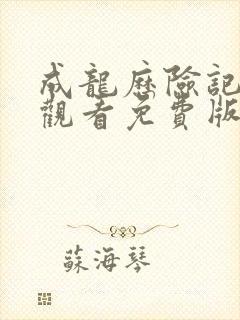 成龍歷險記
觀看免費版
蘇海琴